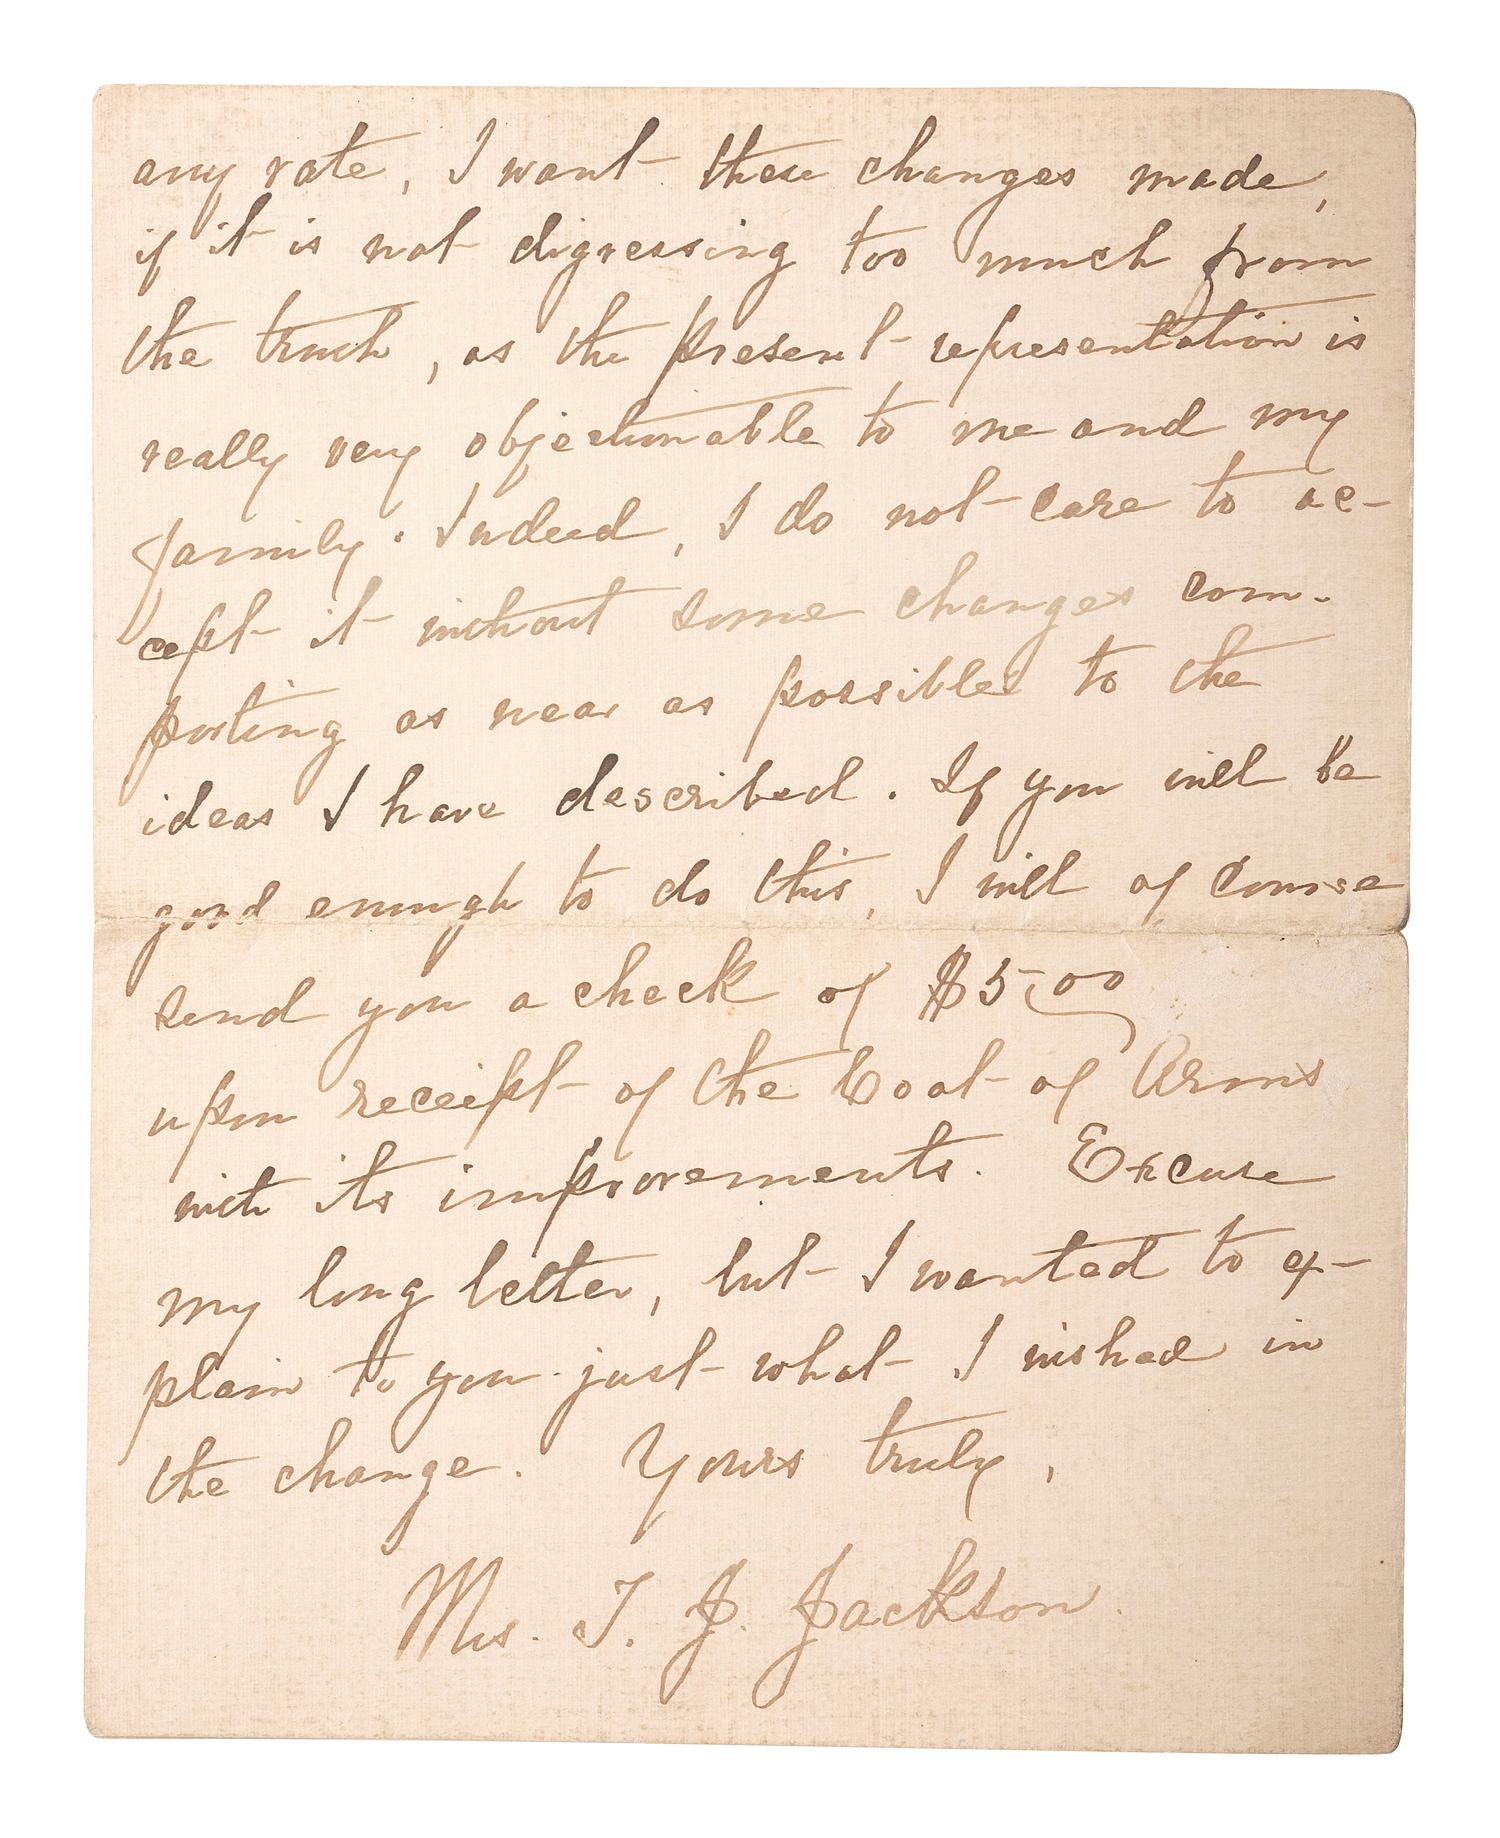 any rate, I want these changes made,
if it is not digressing too much from
the truth, as the present representation is
really very objectionable to me and my
family. Indeed, I do not care to ac-
cept it without some changes com-
porting as near as possible to the
ideas I have described. If you will be
good enough to do this, I will of course
send you a check of $5.00
upon receipt of the Coat of Arms
with its improvements. Excuse
my long letter, but I wanted to ex-
plain to you just what I wished in
the change. Yours truly,
Mrs. T. J. Jackson.